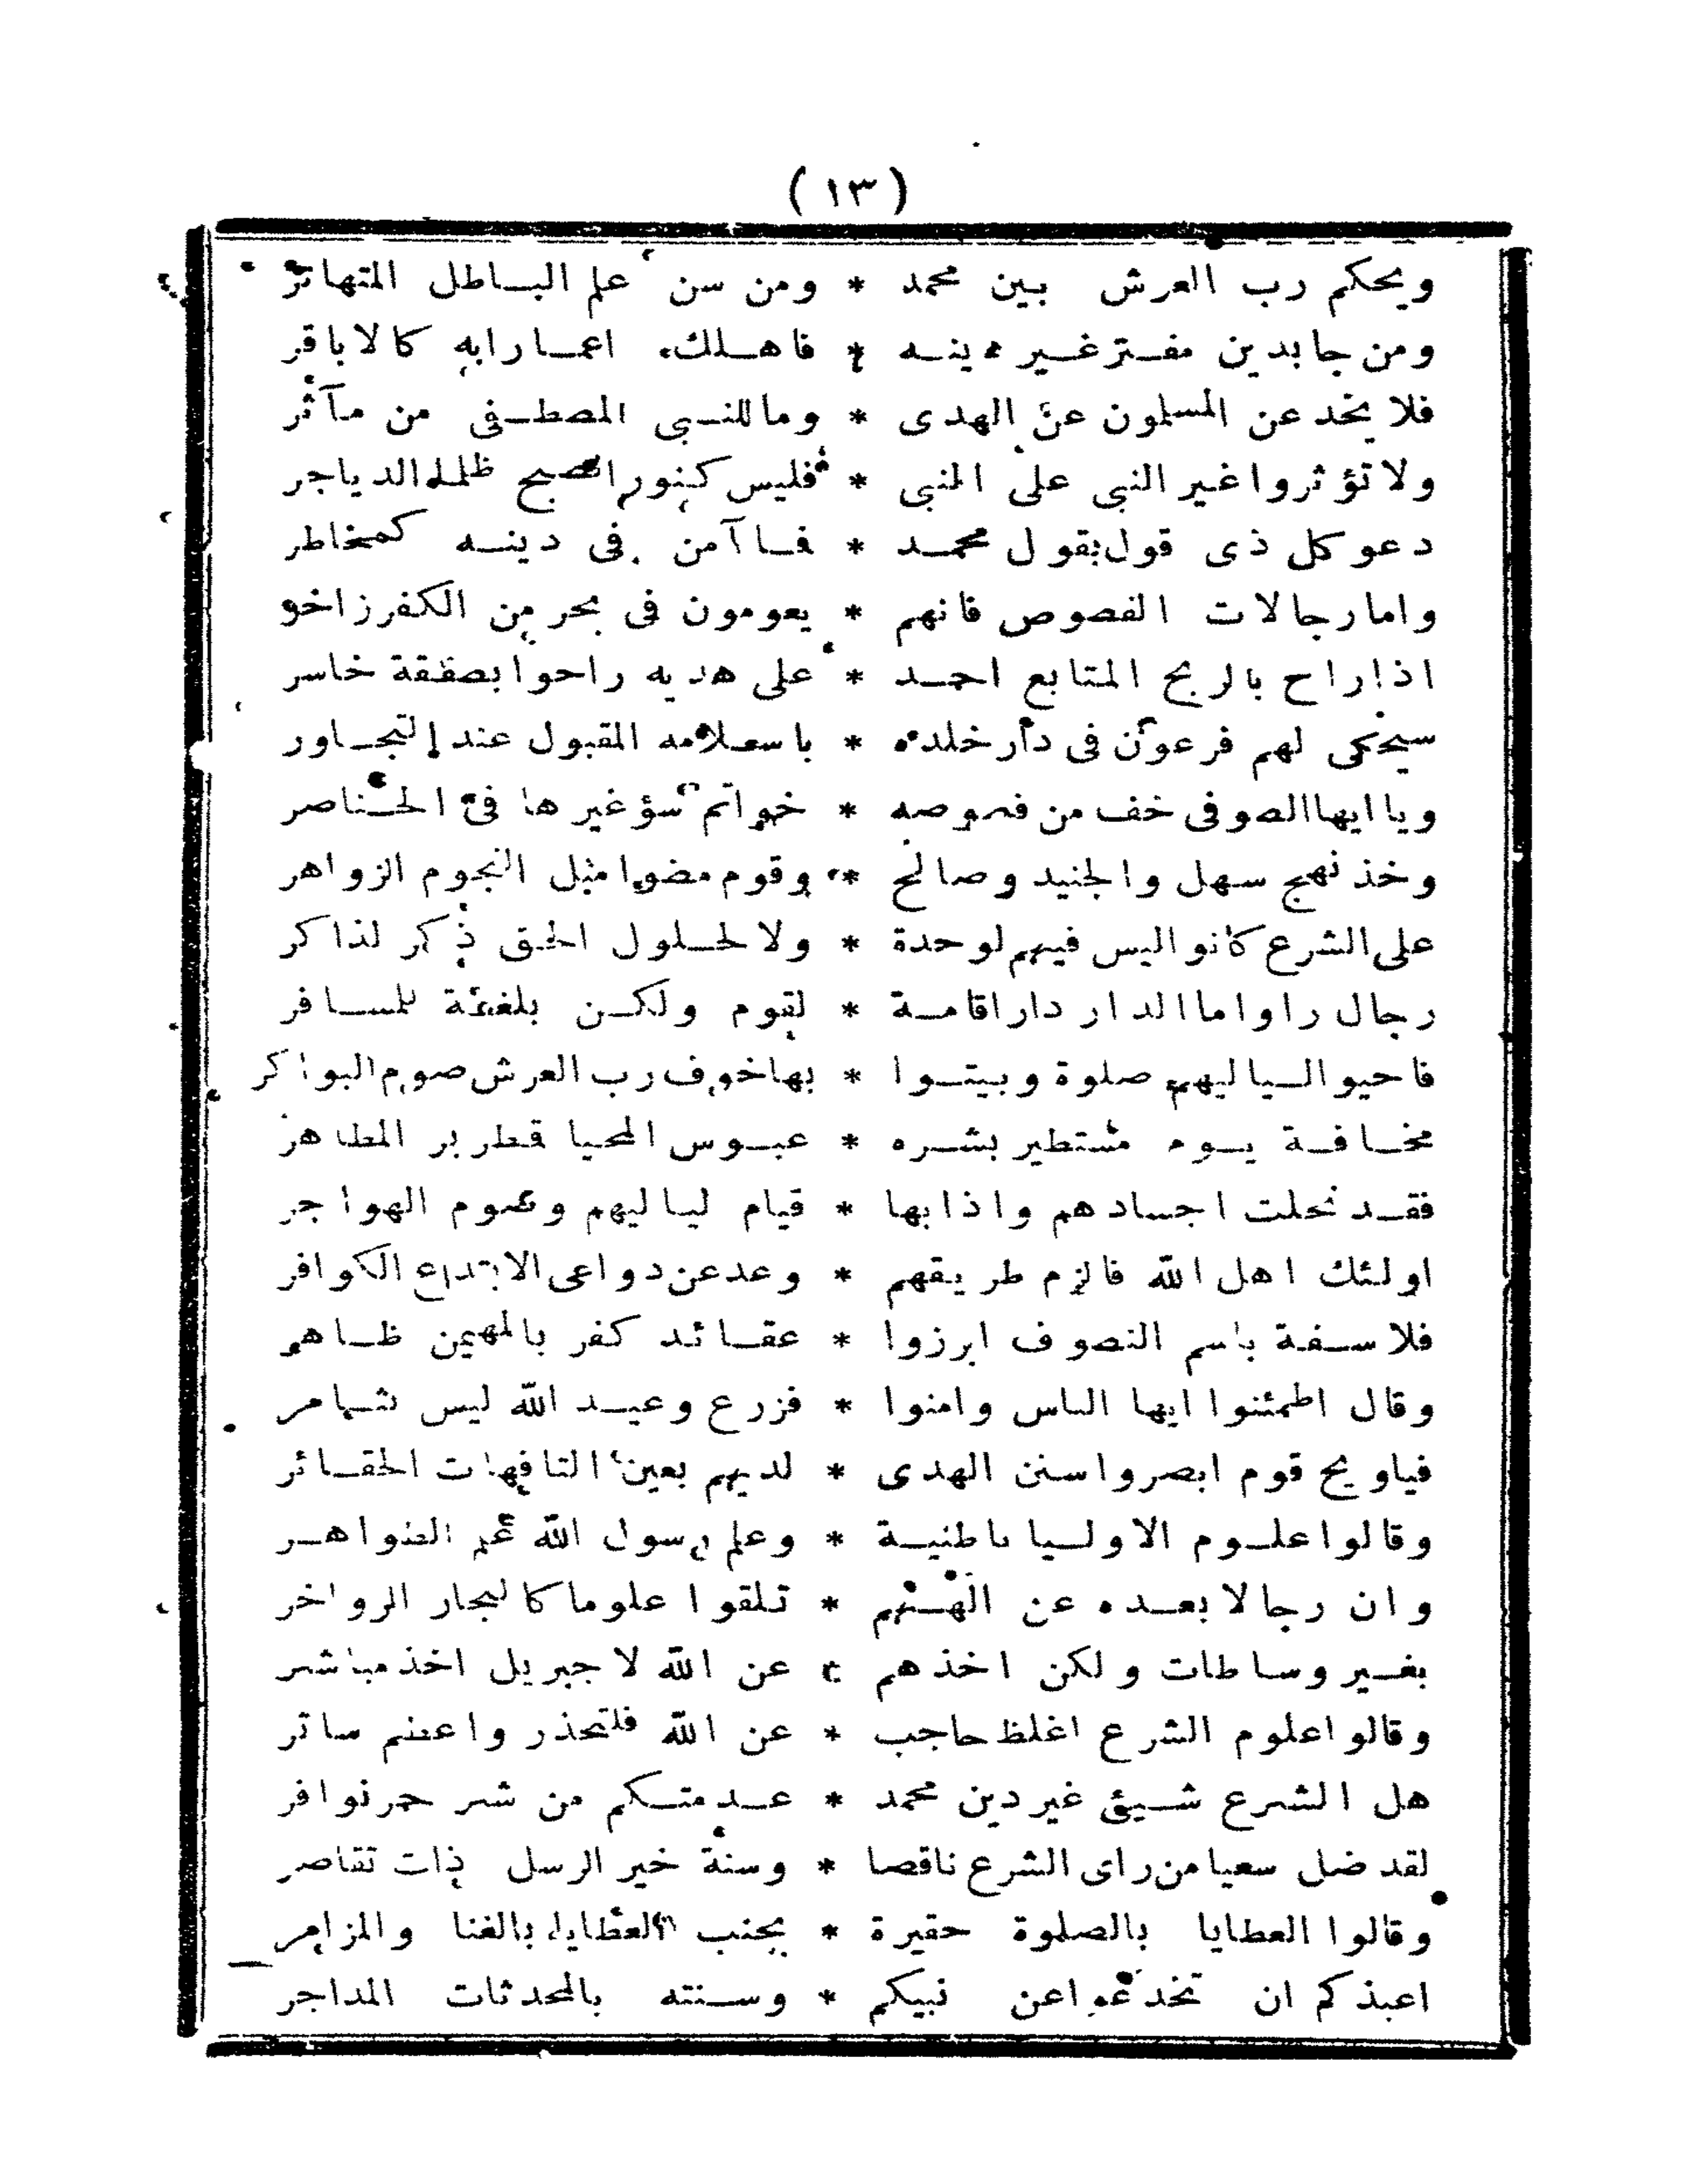 (١٣)
ويحكم رب العرش بين محمد * ومن سن علم الباطل المتهاتر
ومن جا بدين مفتر غير دينه * فاهلك اعمارا به كالاباقر
فلا يخدعن المسلمون عن الهدى * وما للنبي المصطفى من مآثر
ولا تؤثروا غير النبي على النبي * فليس كنور الصبح ظلماء الدياجر
دعو كل ذى قول بقول محمد * فما آمن فى دينه كمخاطر
واما رجالات الفصوص فانهم * يعومون فى بحر من الكفر زاخر
اذا راح بالربح المتابع احمد * على هديه راحوا بصفقة خاسر
سيحكى لهم فرعون فى دار خلده * باسلامه المقبول عند التجاور
ويا ايها الصوفى خف من فصوصه * خواتم سؤ غيرها فى الخناصر
وخذ نهج سهل والجنيد وصالح * وقوم مضوا مثل النجوم الزواهر
على الشرع كانوا ليس فيهم لوحدة * ولا لحلول الحق ذكر لذاكر
رجال راوا ما الدار دار اقامة * لقوم ولكن بلغة للمسافر
فاحيو اليا ليهم صلوة وبيتوا * بها خوف رب العرش صوم البواكر
مخافة يوم مستطير بشره * عبوس المحيا قمطرير المظاهر
فقد نحلت اجسادهم واذابها * قيام لياليهم وصوم الهواجر
اولئك اهل الله فالزم طريقهم * وعد عن دواعى الابتداع الكوافر
فلاسفة باسم التصوف ابرزوا * عقائد كفر بالمهيمن ظاهر
وقال اطمئنوا ايها الناس وامنوا * فزرع وعيد الله ليس بثامر
فياويح قوم ابصروا سنن الهدى * لديهم بعين التافهات الحقائر
وقالوا علوم الاوليا باطنية * وعلم رسول الله علم الظواهر
وان رجالا بعده عن الههم * تلقوا علوما كالبحار الزواخر
بغير وساطات ولكن اخذهم * عن الله لا جبريل اخذ مباشر
وقالوا علوم الشرع اغلظ حاجب * عن الله فلتحذر واعظم ساتر
هل الشرع شيئ غير دين محمد * عدمتكم من شر حمر نوافر
لقد ضل سعيا من راى الشرع ناقصا * وسنة خير الرسل ذات تقاصر
وقالوا العطايا بالصلوة حقيرة * بجنب العطايا بالغنا والمزامر
اعيذكم ان تخدعوا عن نبيكم * وسنته بالمحدثات المداجر